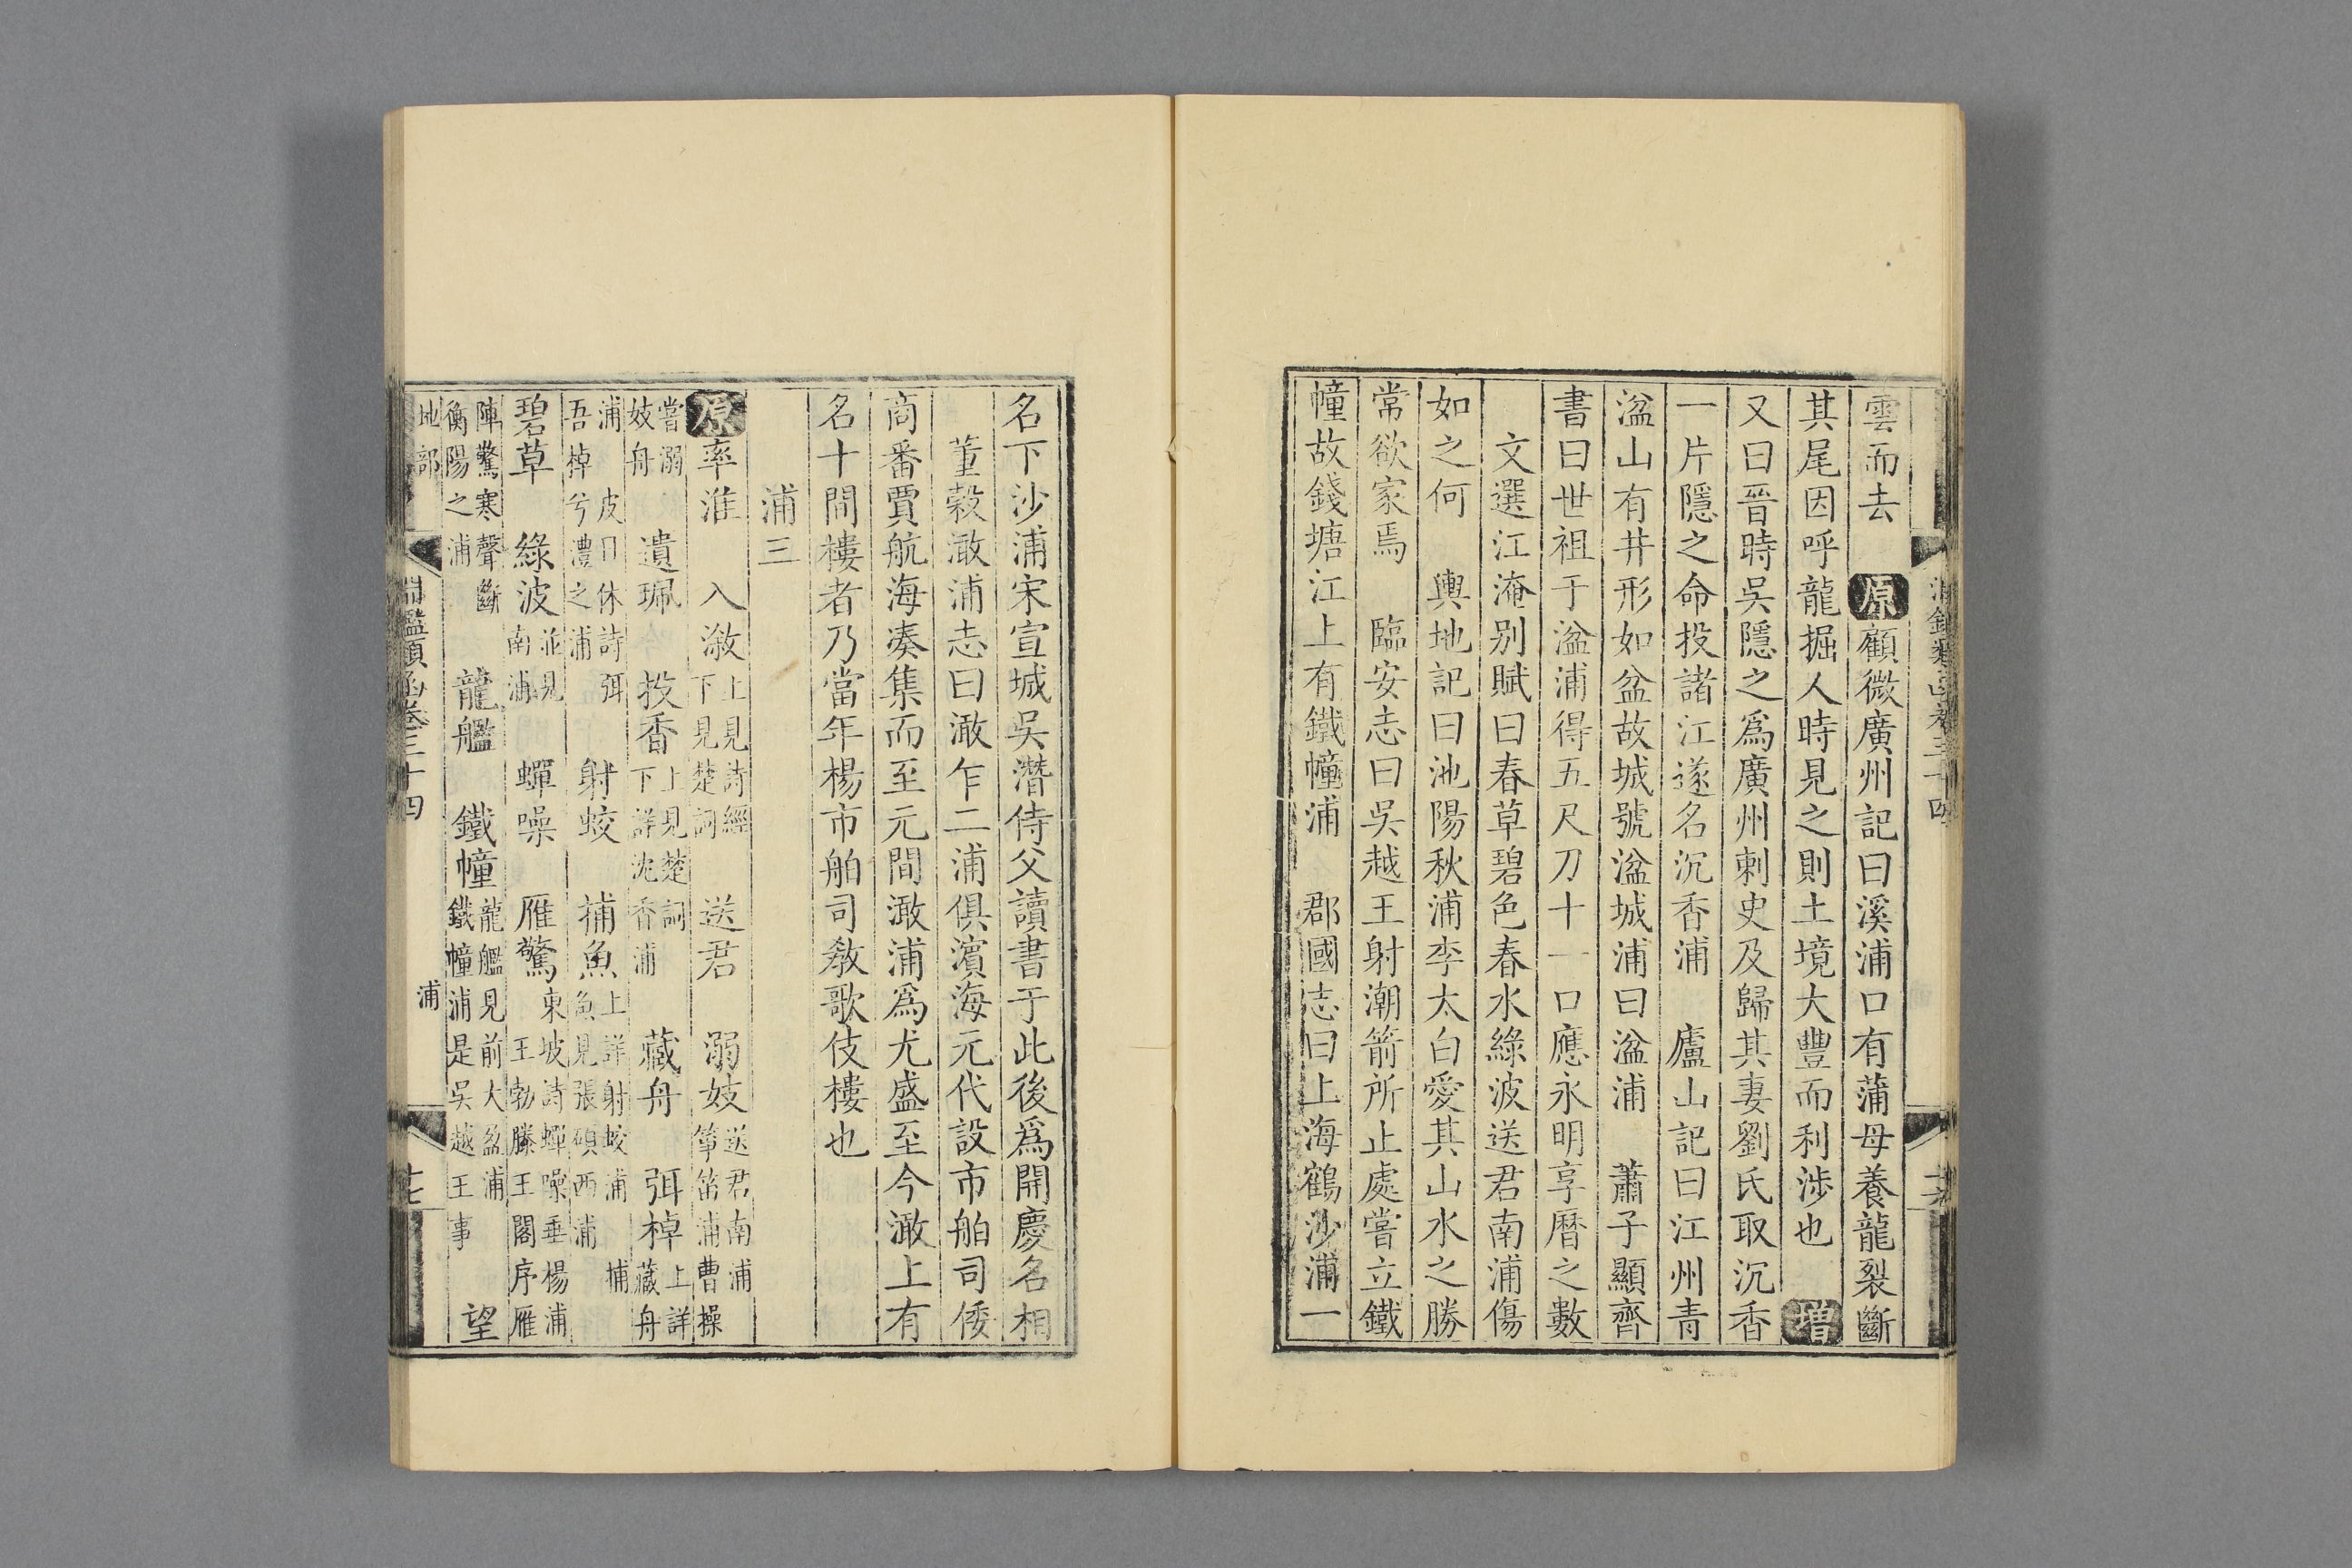 雲而去　原顧微廣州記曰溪浦口有蒲母養龍裂斷
其尾因呼龍掘人時見之則土境大豐而利涉也　增
又曰晉時吳隱之爲廣州刺史及歸其妻劉氏取沉香
一片隱之命投諸江遂名沉香浦　廬山記曰江州青
湓山有井形如盆故城號湓城浦曰湓浦　蕭子顯齊
書曰世祖于湓浦得五尺刀十一口應永明享曆之數
文選江淹别賦曰春草碧色春水綠波送君南浦傷
如之何　輿地記曰池陽秋浦李太白愛其山水之勝
常欲家焉　臨安志曰吳越王射潮箭所止處嘗立鐵
幢故錢塘江上有鐵幢浦　郡國志曰上海鶴沙浦一
名下沙浦宋宣城吳潛侍父讀書于此後爲開慶名相
董榖澉浦志曰澉乍二浦俱濵海元代設市舶司倭
商番賈航海凑集而至元間澉浦爲尤盛至今澉上有
名十間樓者乃當年楊市舶司教歌伎樓也
浦三
原率淮　入漵上見詩經下見楚詞　送君　溺妓送君南浦箏笛浦曹操
嘗溺妓舟　遺珮　投香上見楚詞下詳沈香浦　藏舟　弭棹上詳藏舟
浦　皮日休詩弭吾棹兮澧之浦　射蛟　捕魚上詳射蛟浦　捕魚見張碩西浦
碧草　綠波並見南浦　蟬噪　雁驚東坡詩蟬噪垂楊浦王勃滕王閣序雁
陣驚寒聲斷衡陽之浦　龍艦　鐵幢龍艦見前大盆浦鐵幢浦是吳越王事　望
地部
淵鑑類函卷三十四
浦
十七